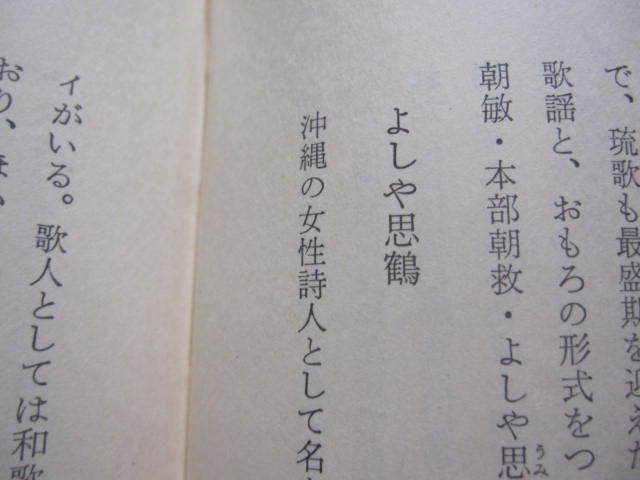 で、琉歌も最盛期を迎えた
歌謡と、おもろの形式をつ
朝敏・本部朝救・よしや思
うみ
よしや思鶴
沖縄の女性詩人として名
ィがいる。歌人としては和歌
おり、ほ